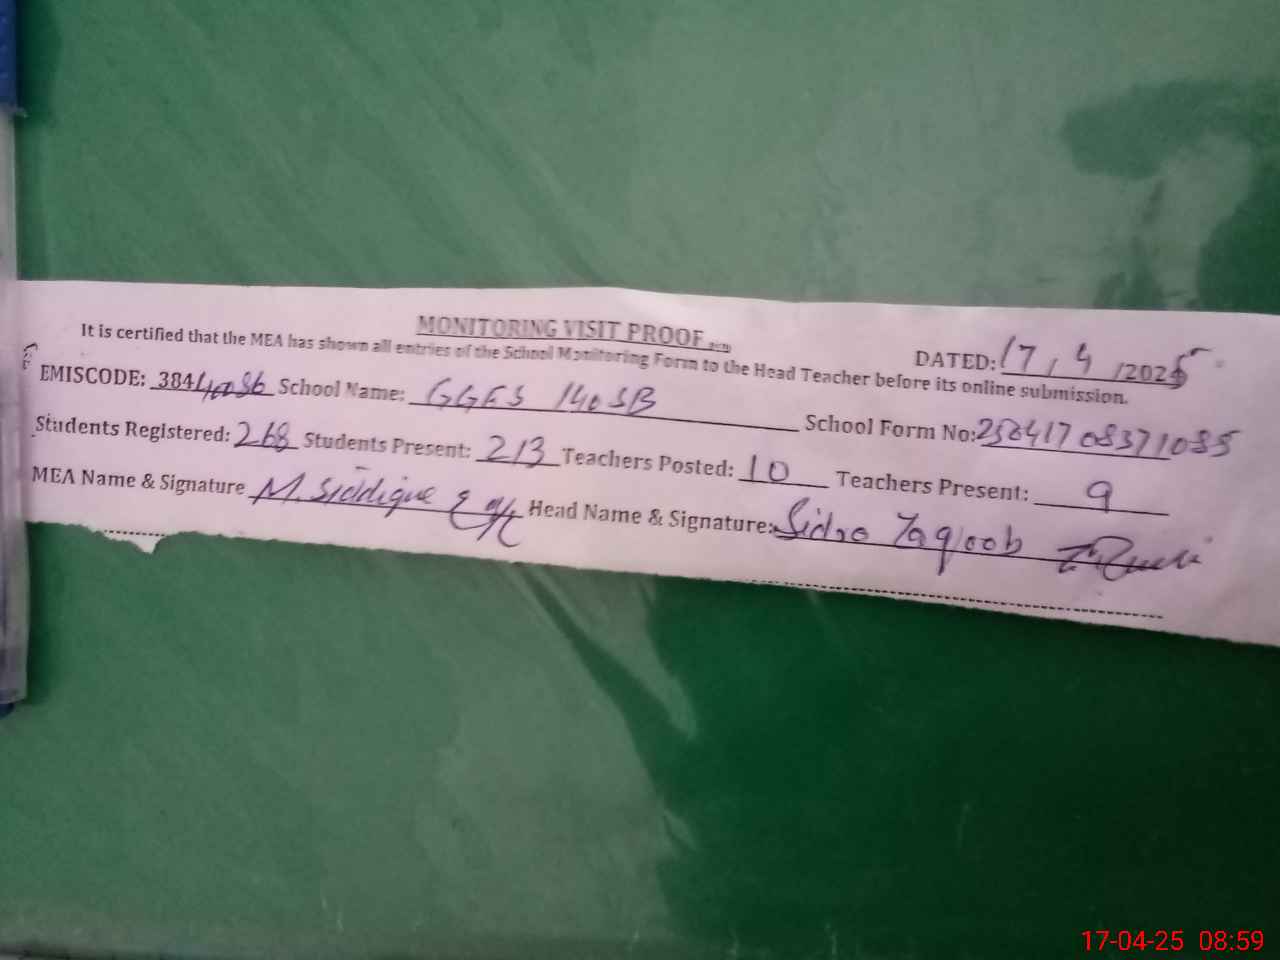 MONITORING VISIT PROOF
DATED: 17, 4 /2025
It is certified that the MEA has shown all entries of the School Monitoring Form to the Head Teacher before its online submission.
EMISCODE: 38440036 School Name: GGES 140 SB School Form No: 25041708371085
Students Registered: 268 Students Present: 213 Teachers Posted: 10 Teachers Present: 9
MEA Name & Signature M. Siddique Head Name & Signature: Sidra Yaqoob
17-04-25 08:59